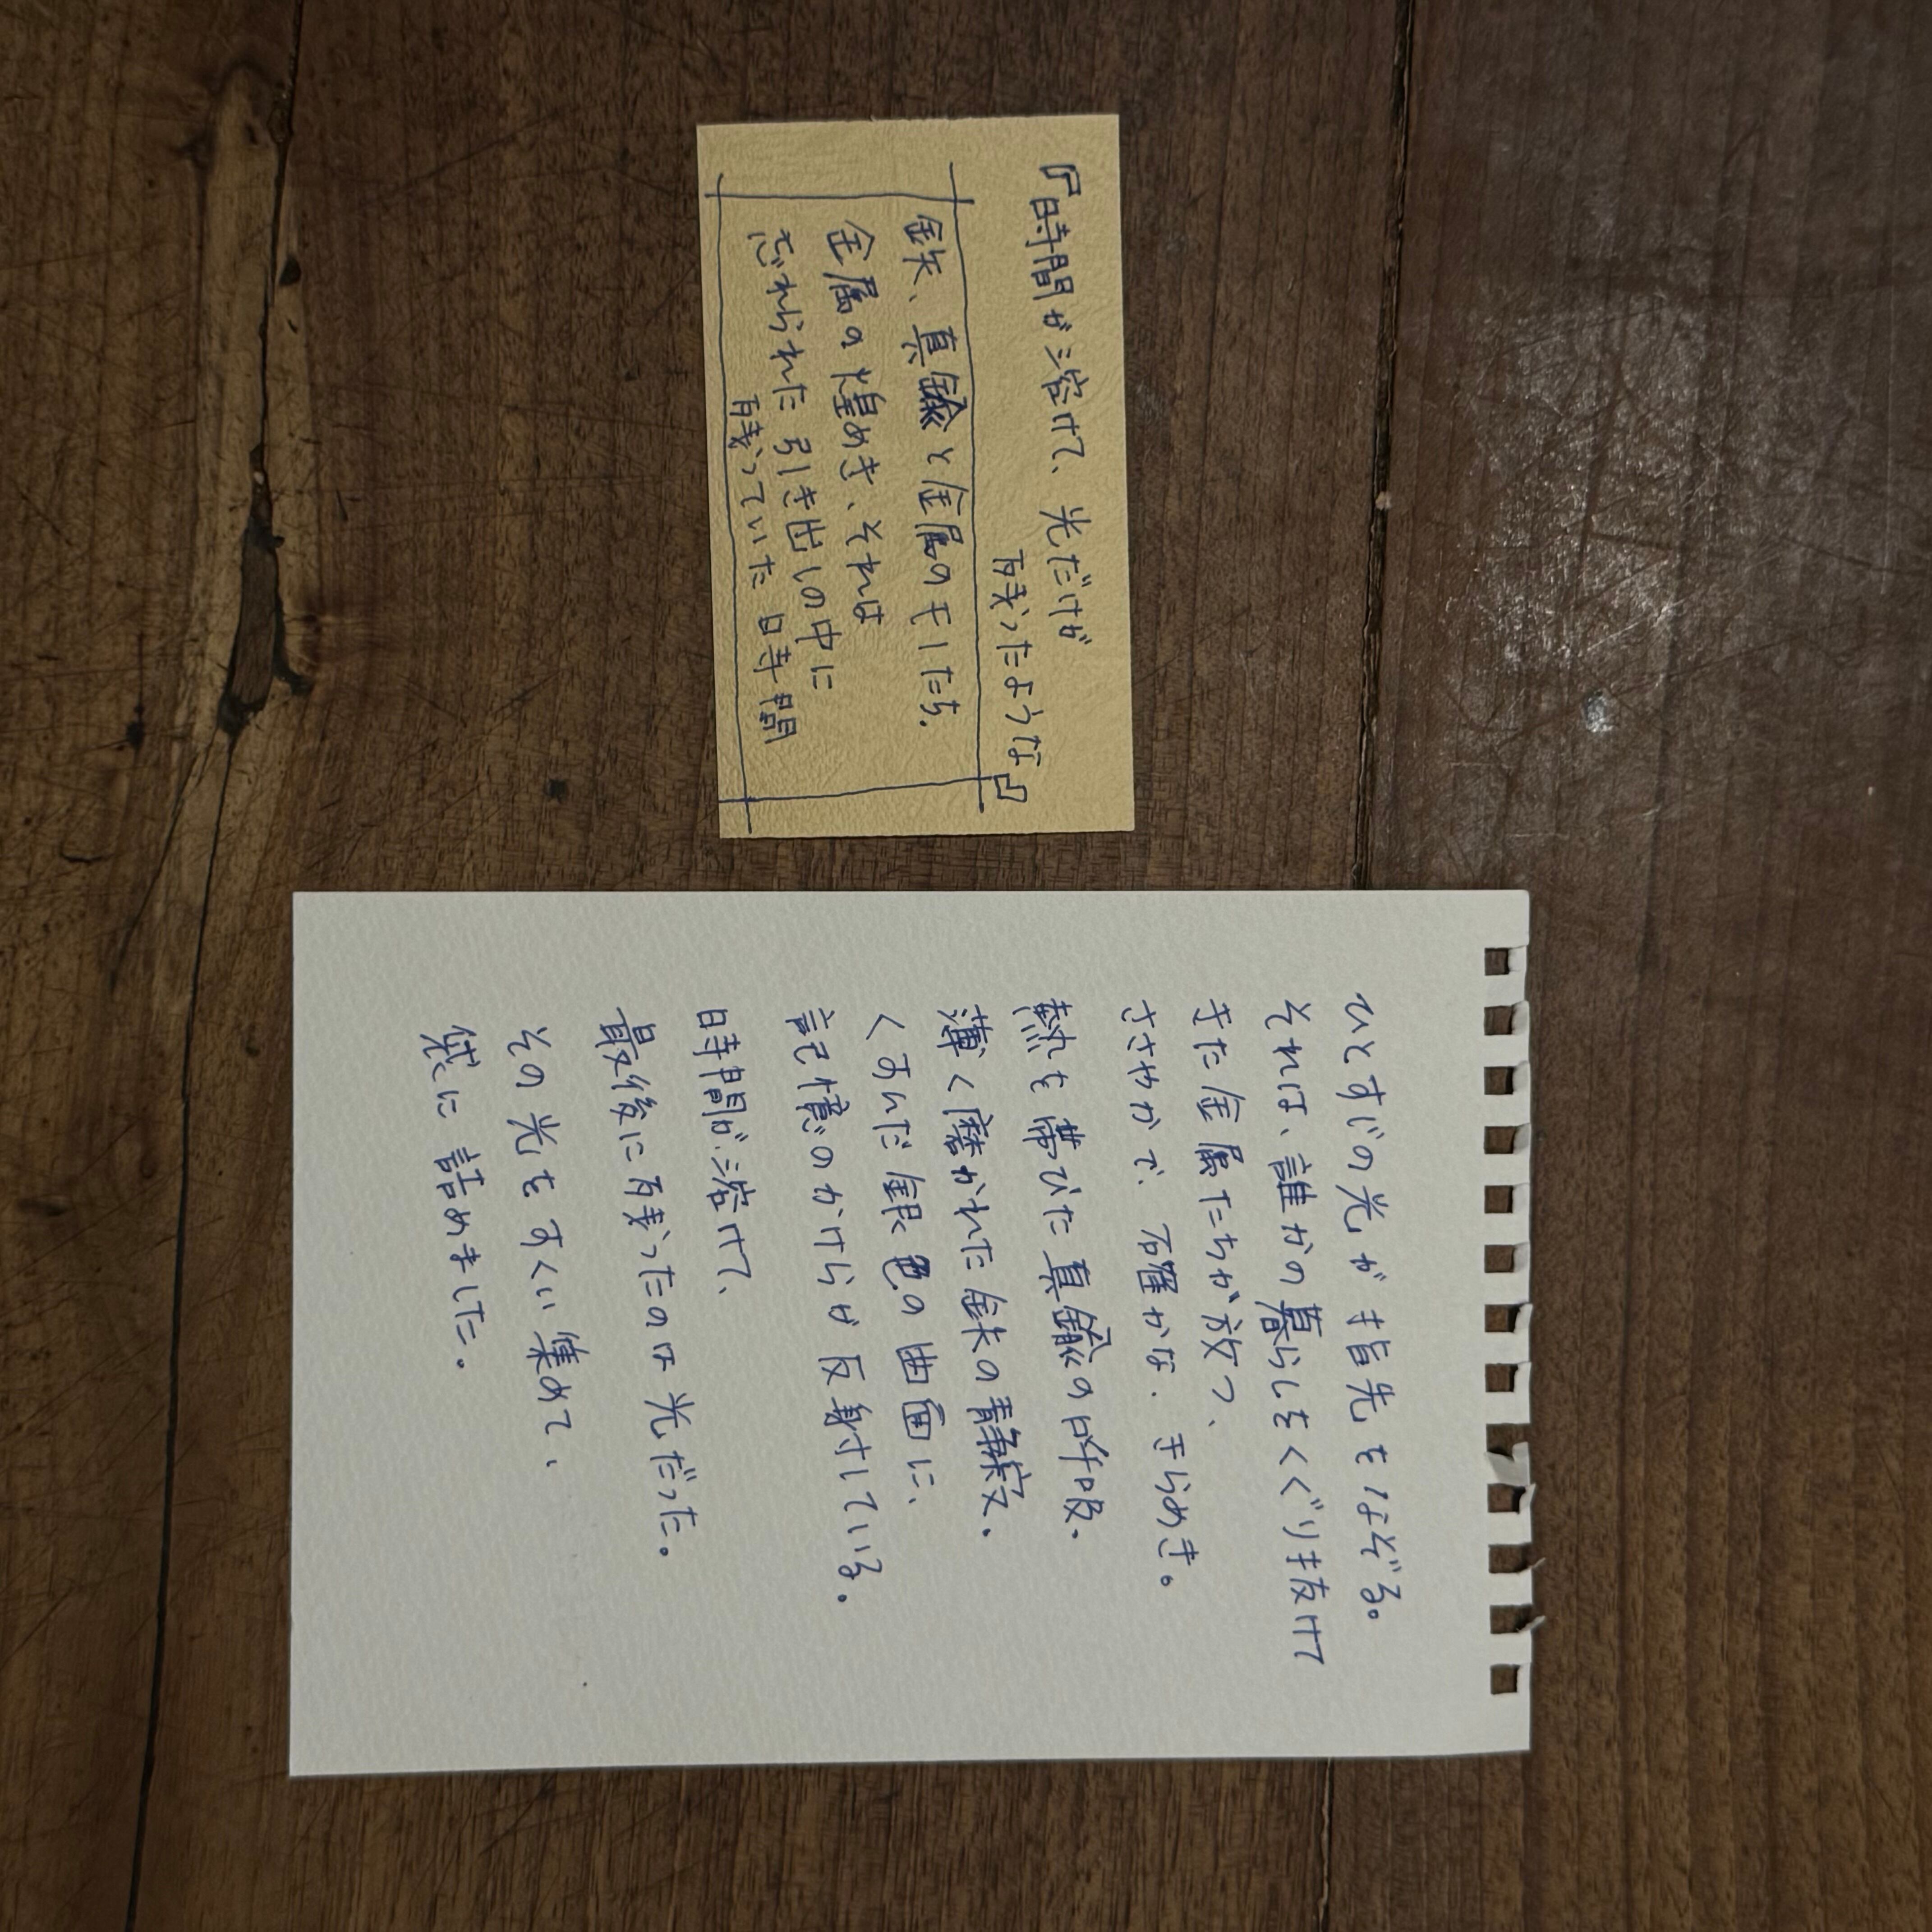 『時間が溶けて、光だけが
残ったような』
鉄、真鍮と金属のキしたち.
金属の煌めき、それは
忘れられた引き出しの中に
残っていた時間
ひとすじの光が指先をなぞる。
それは、誰かの暮らしをくぐり抜けて
きた金属たちが放つ、
ささやかで、確かな、きらめき。
熱を帯びた真鍮の呼吸.
薄く磨かれた鉄の静寂.
くすんだ銀色の曲面に、
記憶のかけらが反射している。
時間が溶けて、
最後に残ったのは光だった。
その光をすくい集めて、
袋に詰めました。